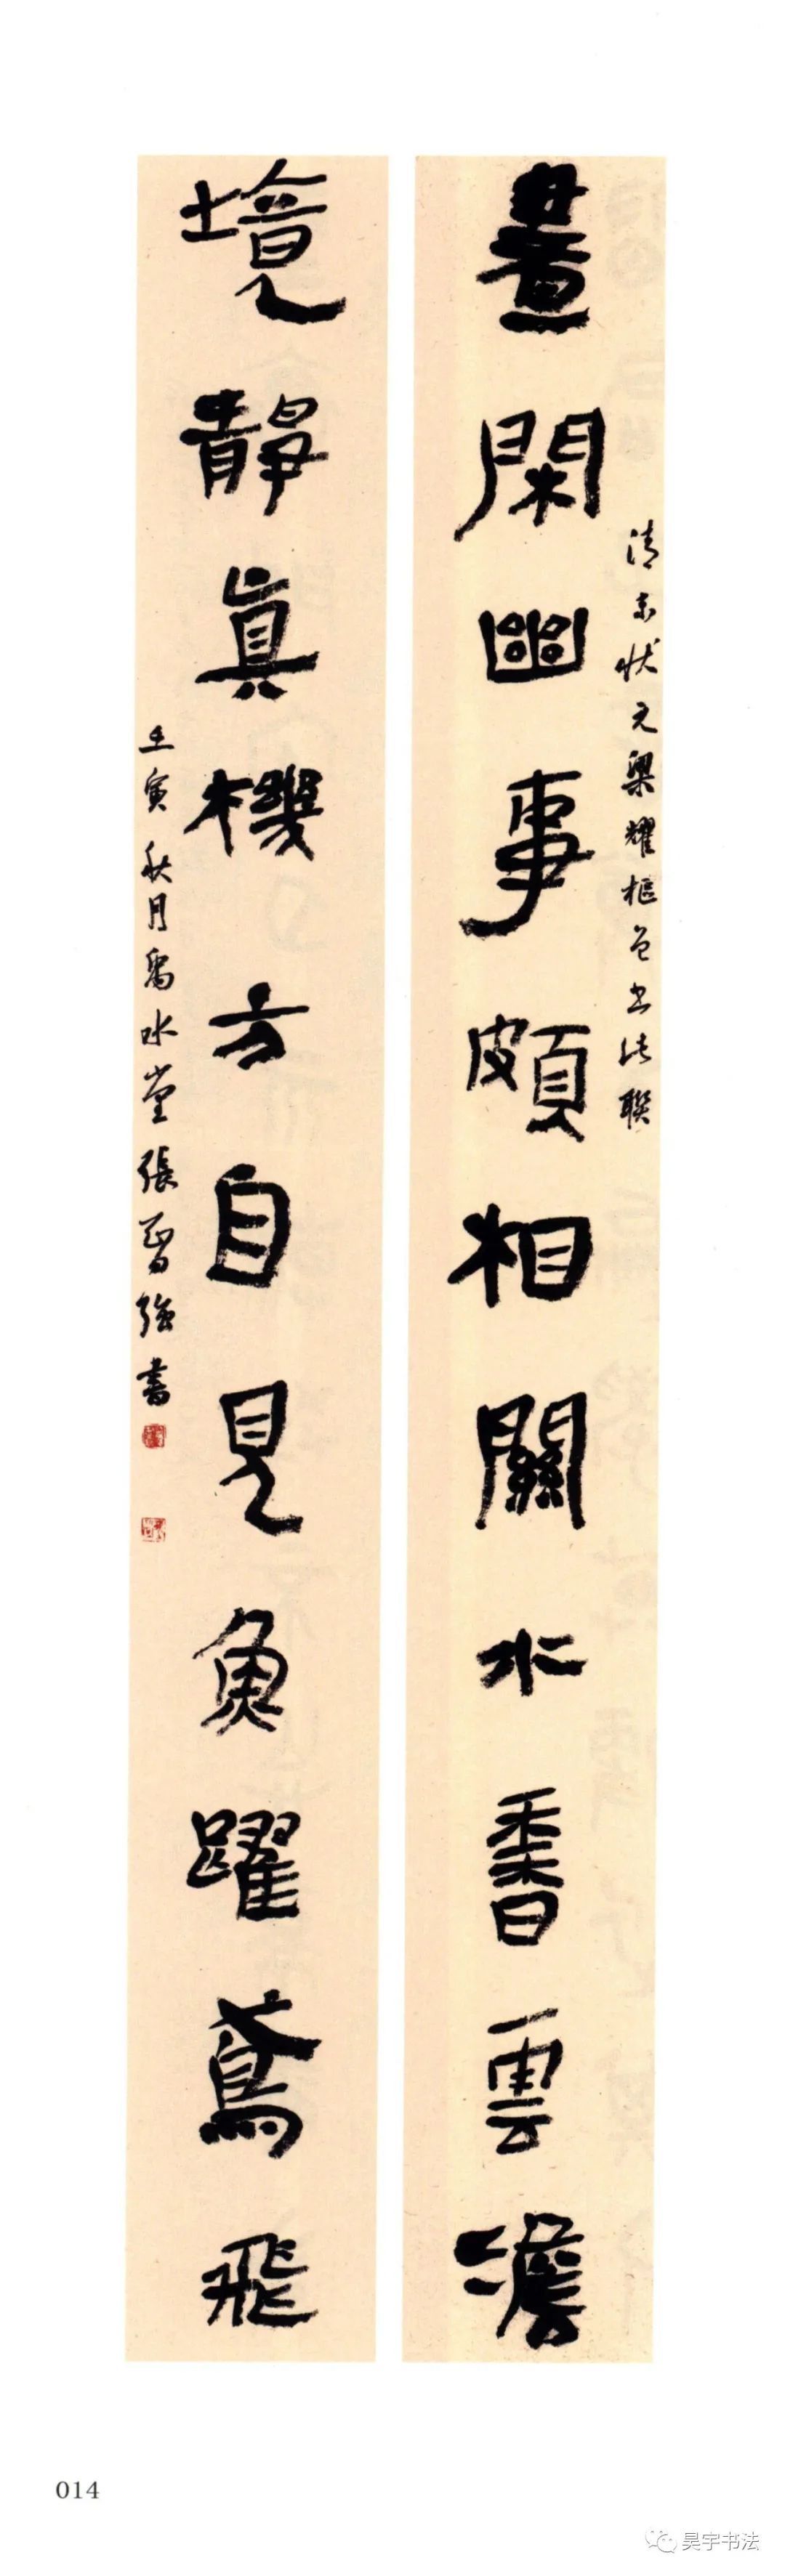 清末状元梁耀枢曾书此联
晝閑幽事頗相關水香雲澹
境靜真機方自見魚躍鳶飛
壬寅秋月禹水堂張晉強書
014
昊宇书法